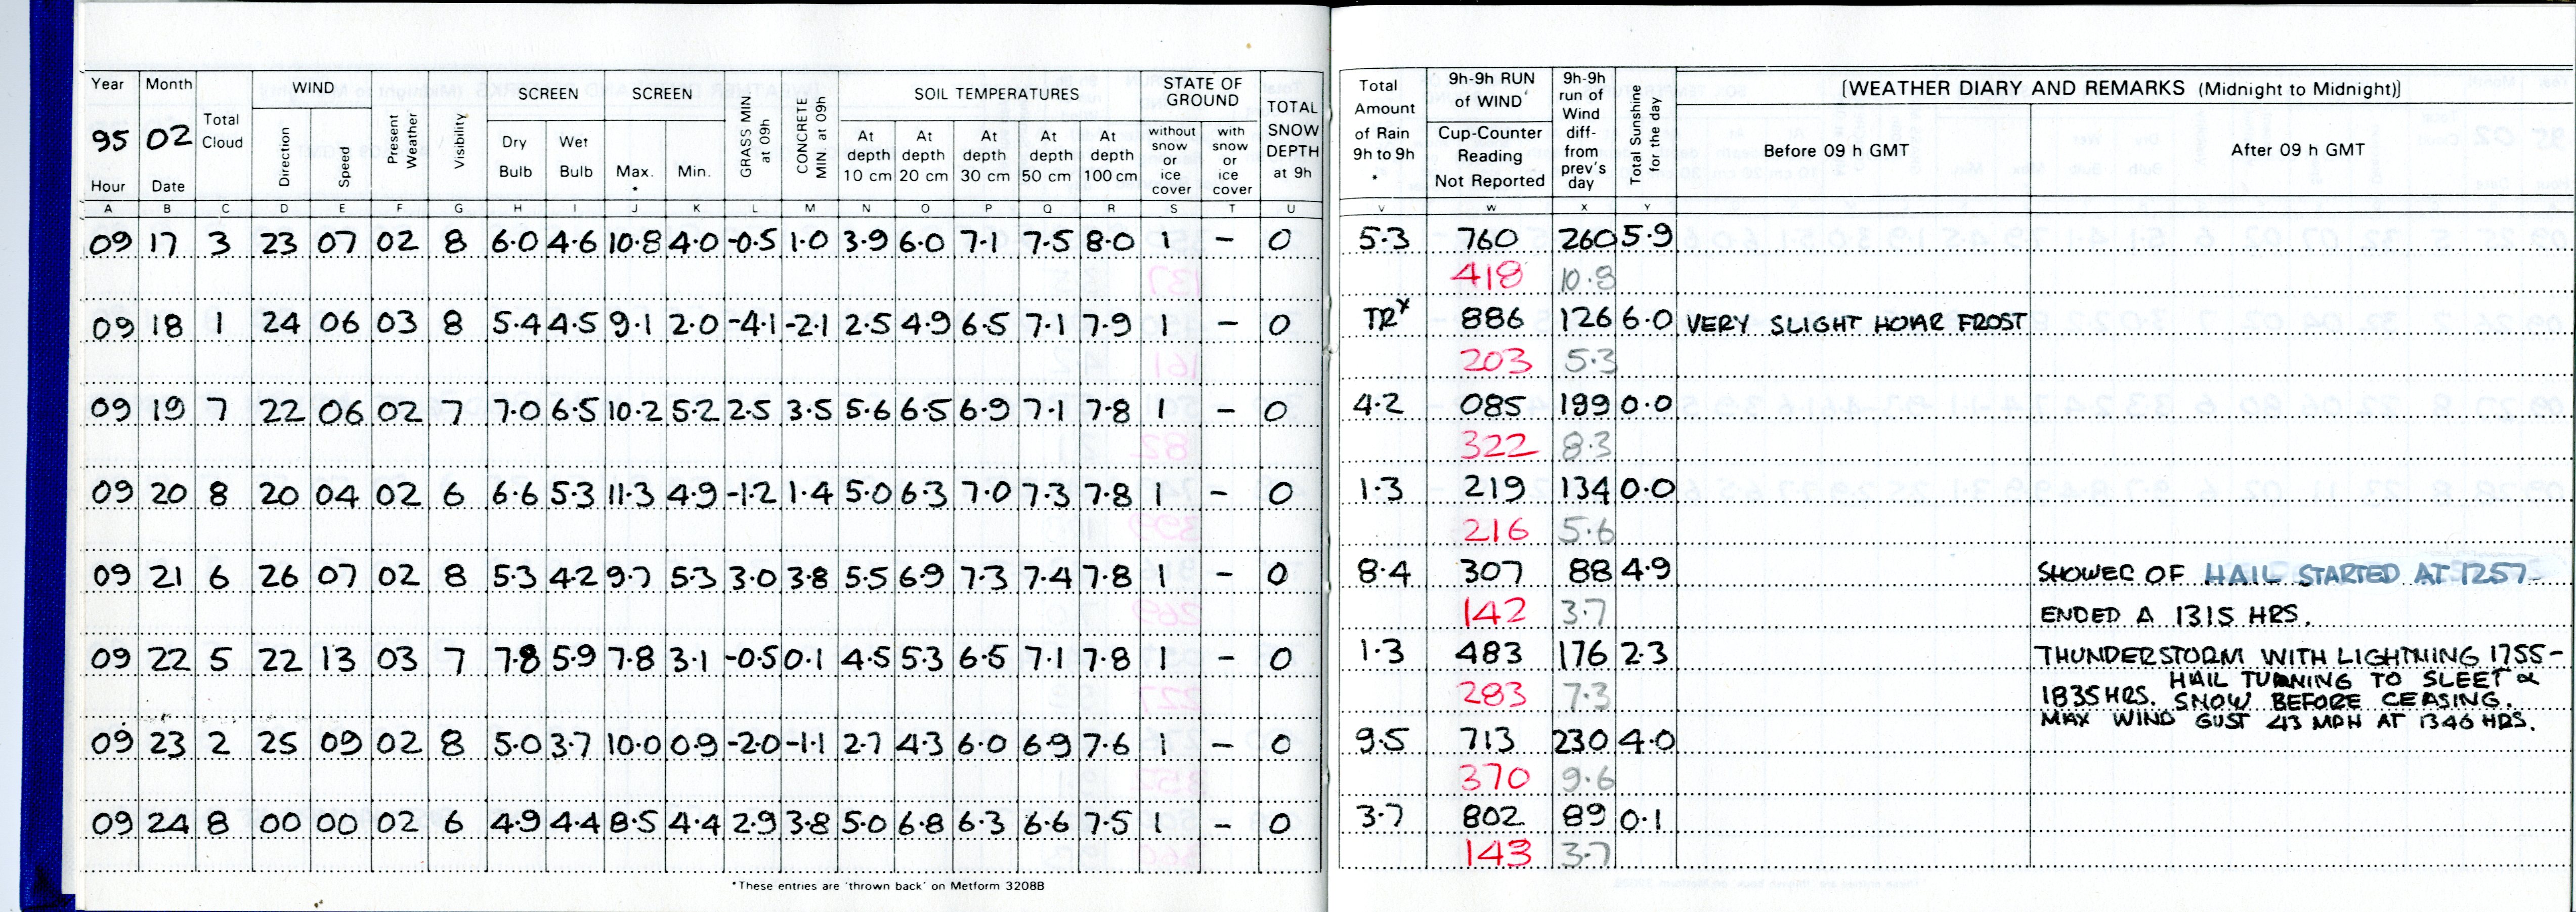 Year Month Total Cloud WIND Present Weather Visibility SCREEN SCREEN GRASS MIN at 09h CONCRETE MIN at 09h SOIL TEMPERATURES STATE OF GROUND TOTAL SNOW DEPTH at 9h Total Amount of Rain 9h to 9h • 9h-9h RUN of WIND' 9h-9h run of Wind diff- from prev's day Total Sunshine for the day (WEATHER DIARY AND REMARKS (Midnight to Midnight))
95 02 Direction Speed Dry Bulb Wet Bulb Max. • Min. At depth 10 cm At depth 20 cm At depth 30 cm At depth 50 cm At depth 100 cm without snow or ice cover with snow or ice cover Cup-Counter Reading Not Reported Before 09 h GMT After 09 h GMT
Hour Date
A B C D E F G H I J K L M N O P Q R S T U V W X Y
09 17 3 23 07 02 8 6.0 4.6 10.8 4.0 -0.5 1.0 3.9 6.0 7.1 7.5 8.0 1 - 0 5.3 760 260 5.9
418 10.8
09 18 1 24 06 03 8 5.4 4.5 9.1 2.0 -4.1 -2.1 2.5 4.9 6.5 7.1 7.9 1 - 0 TRx 886 126 6.0 VERY SLIGHT HOAR FROST
203 5.3
09 19 7 22 06 02 7 7.0 6.5 10.2 5.2 2.5 3.5 5.6 6.5 6.9 7.1 7.8 1 - 0 4.2 085 199 0.0
322 8.3
09 20 8 20 04 02 6 6.6 5.3 11.3 4.9 -1.2 1.4 5.0 6.3 7.0 7.3 7.8 1 - 0 1.3 219 134 0.0
216 5.6
09 21 6 26 07 02 8 5.3 4.2 9.7 5.3 3.0 3.8 5.5 6.9 7.3 7.4 7.8 1 - 0 8.4 307 88 4.9 SHOWER OF HAIL STARTED AT 1257
142 3.7 ENDED A 1315 HRS.
09 22 5 22 13 03 7 7.8 5.9 7.8 3.1 -0.5 0.1 4.5 5.3 6.5 7.1 7.8 1 - 0 1.3 483 176 2.3 THUNDERSTORM WITH LIGHTNING 1755-
HAIL TURNING TO SLEET &
283 7.3 1835 HRS. SNOW BEFORE CEASING.
MAX WIND GUST 43 MPH AT 1346 HRS.
09 23 2 25 09 02 8 5.0 3.7 10.0 0.9 -2.0 -1.1 2.7 4.3 6.0 6.9 7.6 1 - 0 9.5 713 230 4.0
370 9.6
09 24 8 00 00 02 6 4.9 4.4 8.5 4.4 2.9 3.8 5.0 6.8 6.3 6.6 7.5 1 - 0 3.7 802 89 0.1
143 3.7
*These entries are 'thrown back' on Metform 3208B